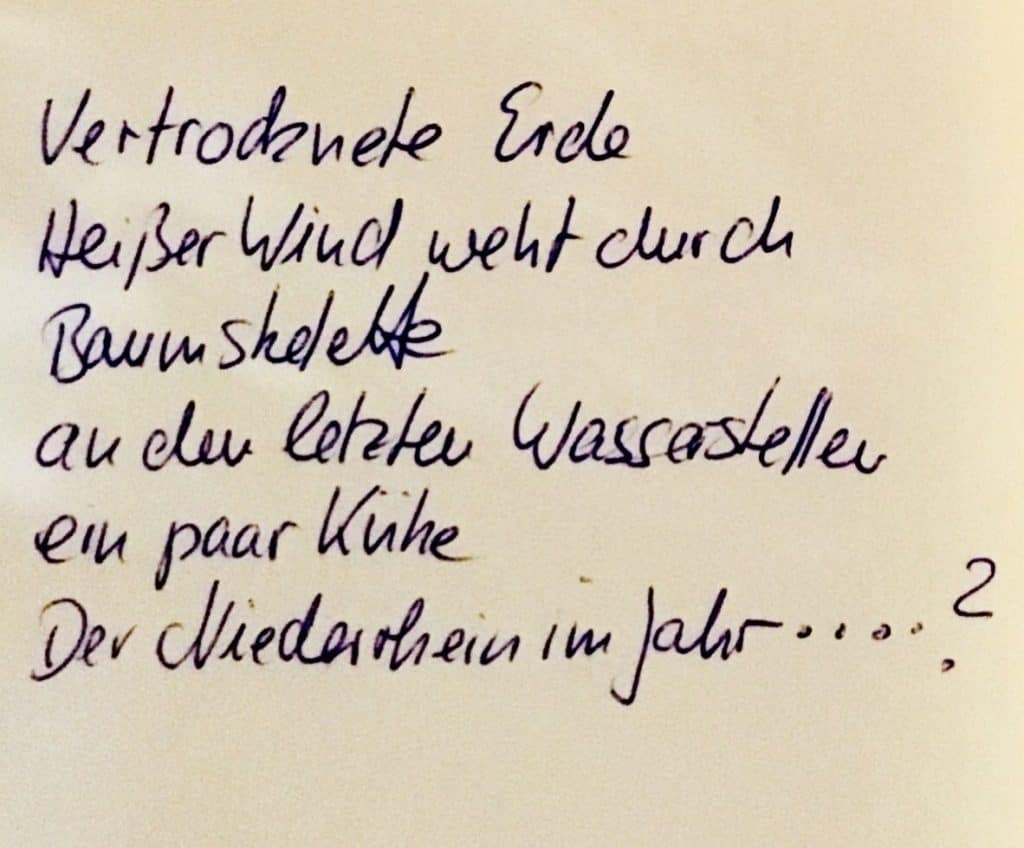 Vertrocknete Erde
Heißer Wind weht durch
Baumskelette
an den letzten Wasserstellen
ein paar Kühe
Der Niederrhein im Jahr.....?